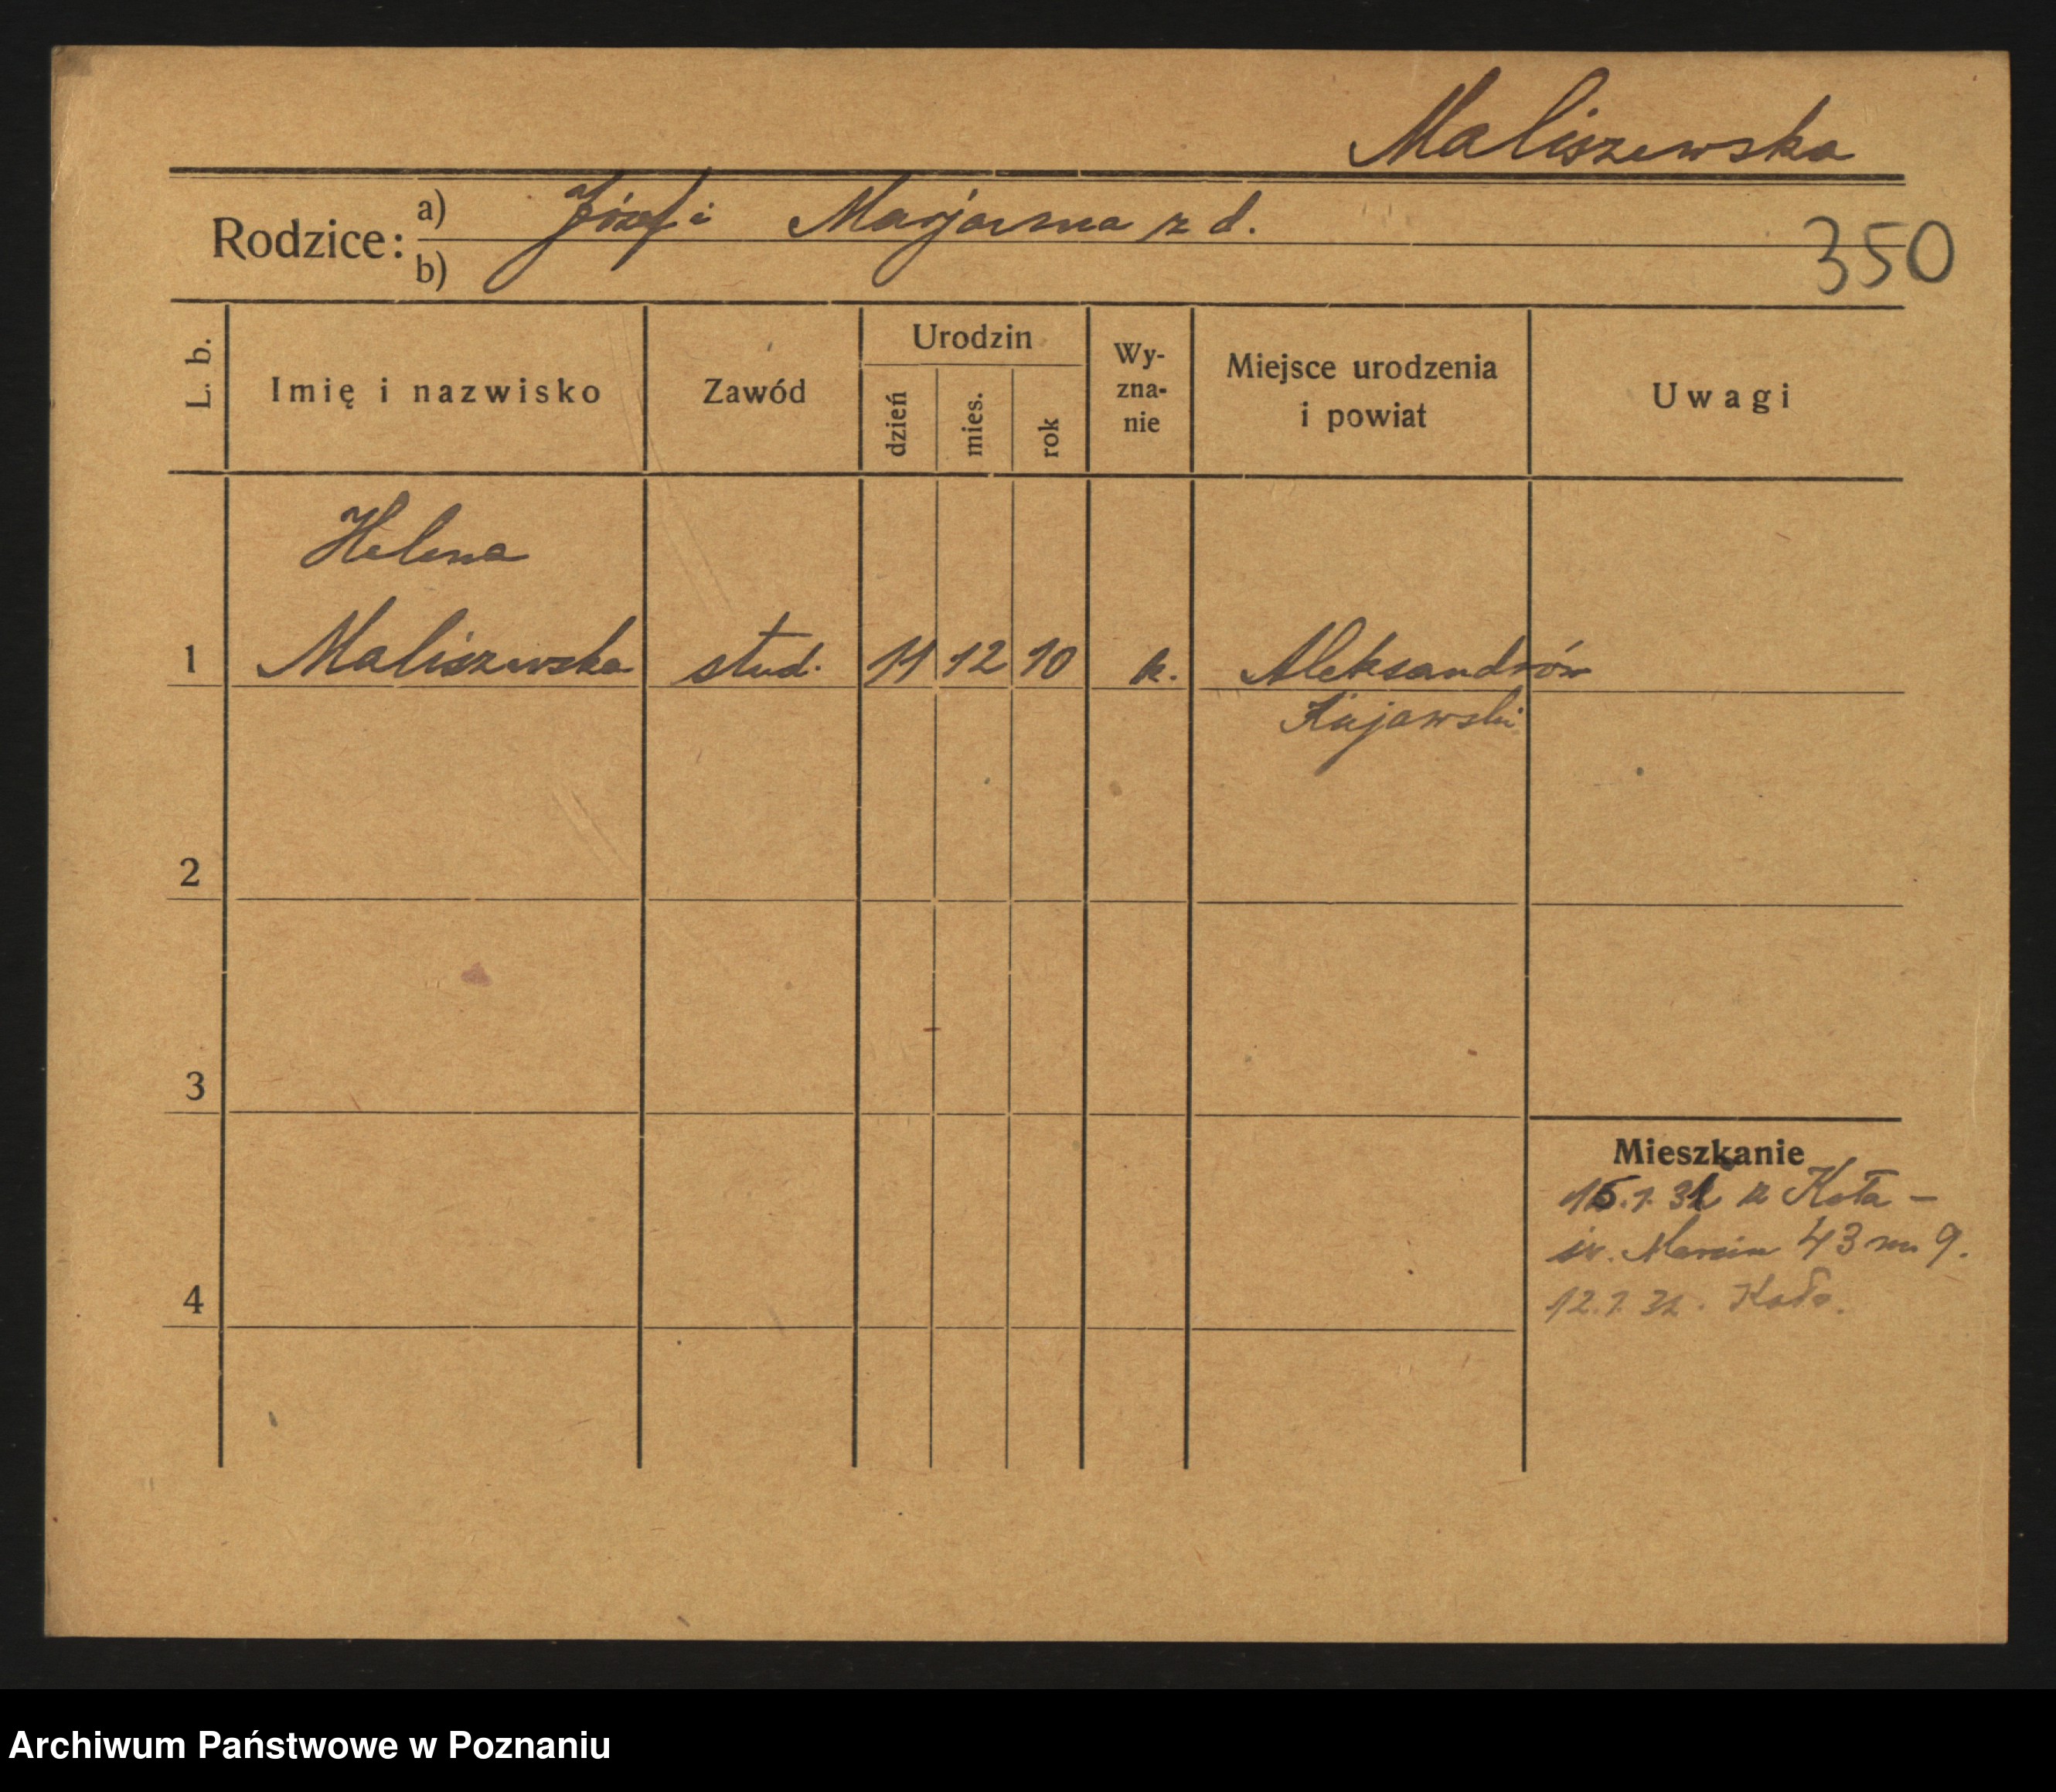 Maliszewska
Rodzice: a) Józef i Marjanna z d.
b)
350
L. b.
Imię i nazwisko
Zawód
Urodzin
dzień
mies.
rok
Wy-
zna-
nie
Miejsce urodzenia
i powiat
Uwagi
Helena
1 Maliszewska stud. 11 12 10 k. Aleksandrów
Kujawski
2
3
Mieszkanie
15.1.31 z Koła –
św. Marcin 43 m 9.
4
12.7. Koło.
Archiwum Państwowe w Poznaniu